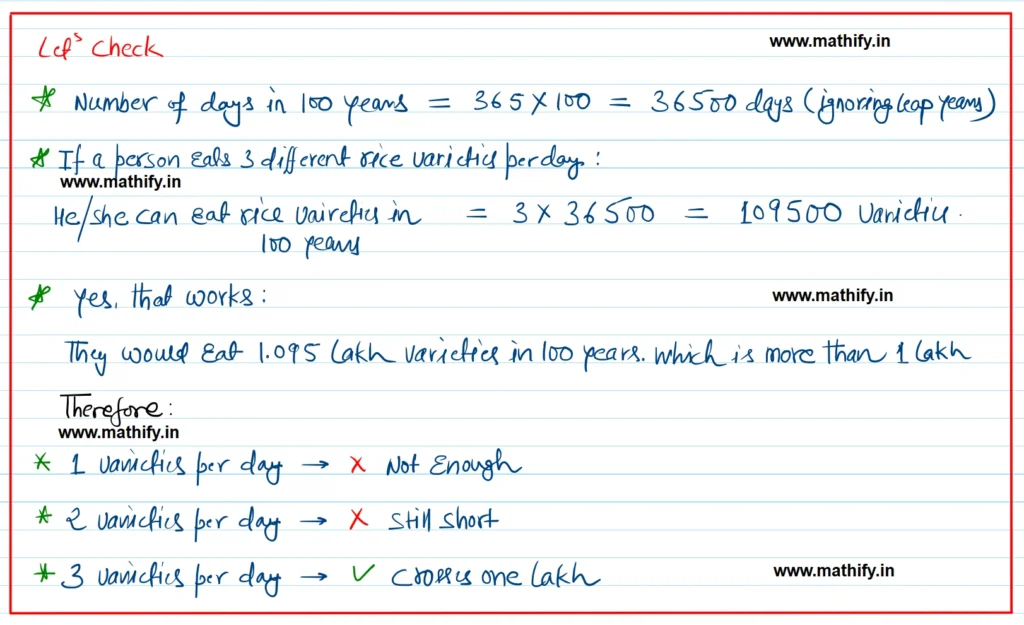 Let's Check
www.mathify.in
* Number of days in 100 years = 365 X 100 = 36500 days (ignoring leap years)
* If a person eats 3 different rice varieties per day :
www.mathify.in
He/she can eat rice vaireties in = 3 x 36500 = 109500 varieties.
100 years
* Yes, that works :
www.mathify.in
They would eat 1.095 Lakh varieties in 100 years. which is more than 1 lakh
Therefore :
www.mathify.in
* 1 varieties per day → X Not Enough
* 2 varieties per day → X still short
* 3 varieties per day → ✓ crosses one lakh
www.mathify.in